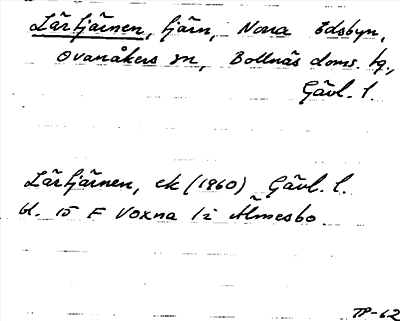 Lärtjärnen, tjärn, Norra Edsbyn,
Ovanåkers sn, Bollnäs doms. hg.,
Gävl. l.
Lärtjärnen, ek (1960) Gävl. l.
bl. 15 F Voxna 1:2 Älmesbo
TP-62